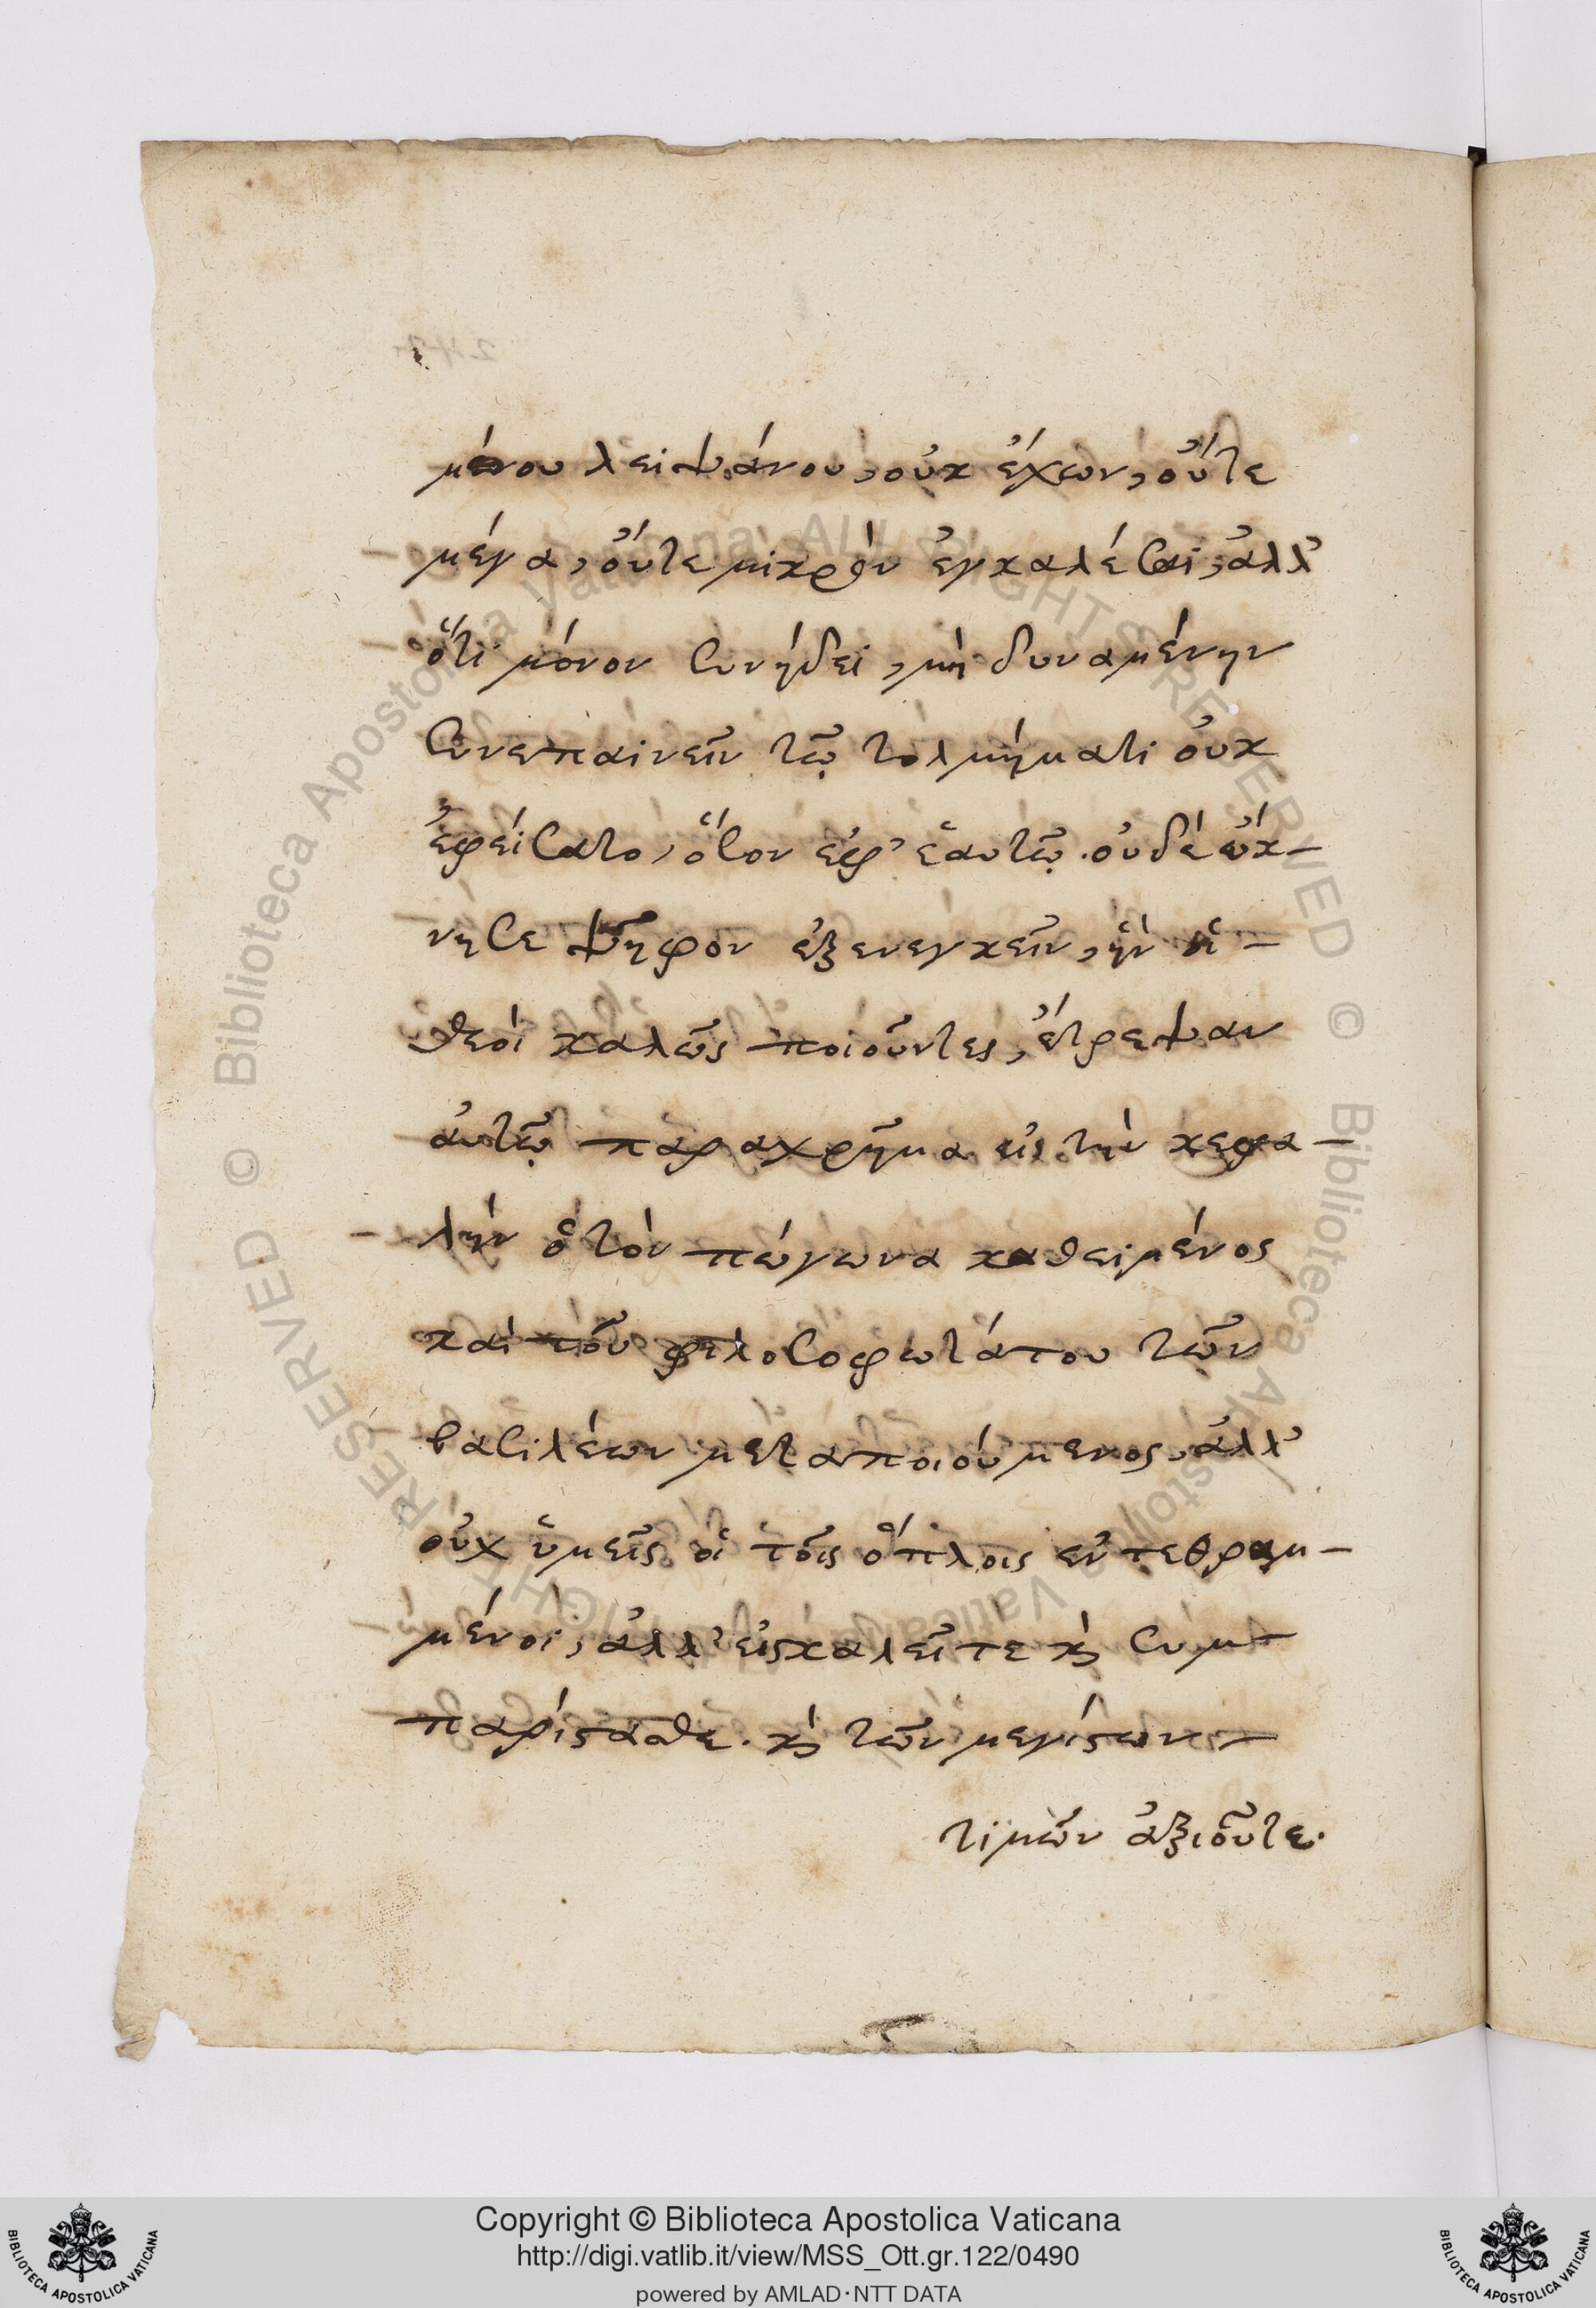 μένου λειψάνου, οὐκ ἔχων, οὔτε
μέγα, οὔτε μικρὸν ἐγκαλέσαι, ἀλλ᾽
ὅτι μόνον συνήδει, μὴ δυναμένην
συνεπαινεῖν τῷ τολμήματι οὐκ
ἐφείσατο, ὅσον ἐφ᾽ ἑαυτῷ. οὐδὲ ὤκ-
νησε ψῆφον ἐξενεγκεῖν, ἣν οἱ
θεοὶ καλῶς ποιοῦντες, ἔτρεψαν
αὐτῷ παραχρῆμα εἰς τὴν κεφα-
λὴν ὁ τὸν πώγωνα καθειμένος
καὶ τοῦ φιλοσοφωτάτου τῶν
βασιλέων μεταποιούμενος, ἀλλ᾽
οὐχ ὑμεῖς οἱ τοῖς ὅπλοις ἐντεθραμ-
μένοι, ἀλλ᾽ εἰσκαλεῖτε καὶ συμ-
παρίστασθε. καὶ τῶν μεγίστων
τιμῶν ἀξιοῦτε.
Copyright © Biblioteca Apostolica Vaticana
http://digi.vatlib.it/view/MSS_Ott.gr.122/0490
powered by AMLAD·NTT DATA